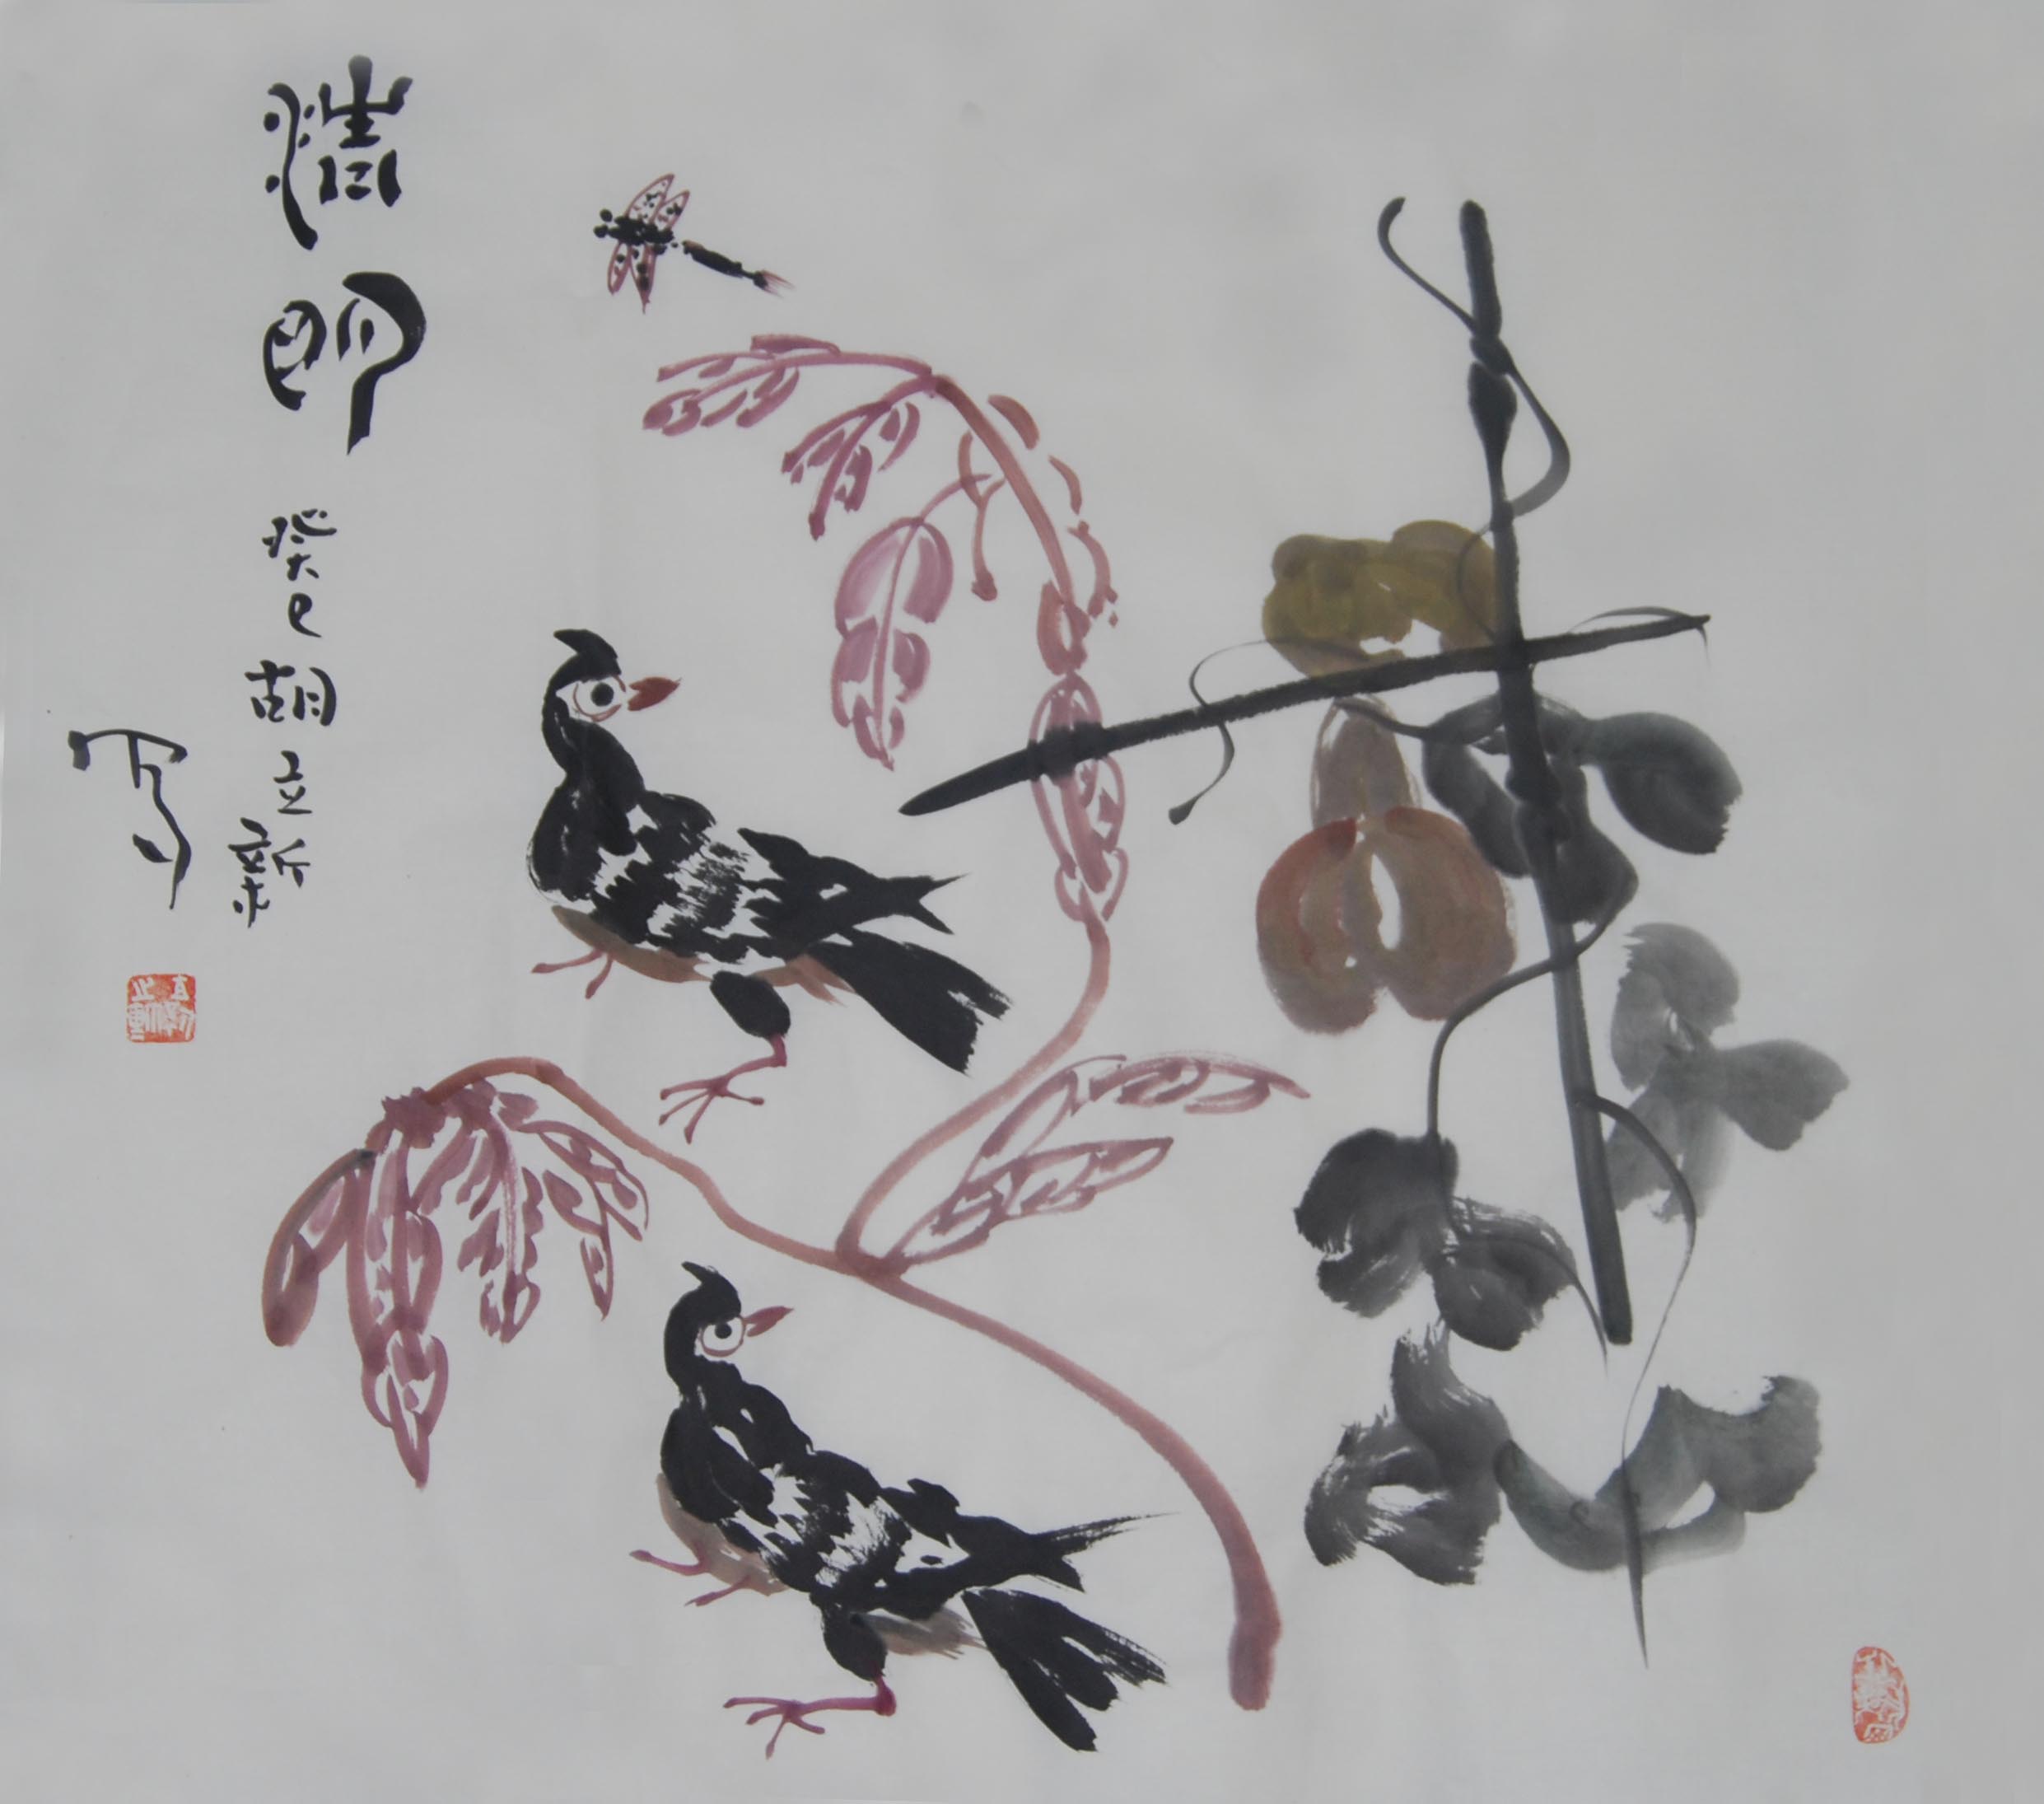 清明
癸巳胡立新
写